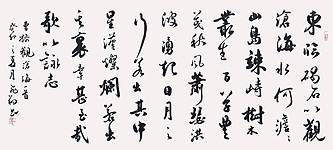 東臨碣石以觀
滄海水何澹澹
山島竦峙樹木
叢生百草豐
茂秋風蕭瑟洪
波涌起日月之
行若出其中
星漢燦爛若出
其裏幸甚至哉
歌以詠志